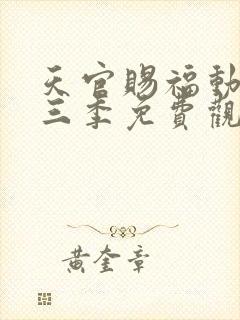 天官賜福動
三季免費觀
黃奎章